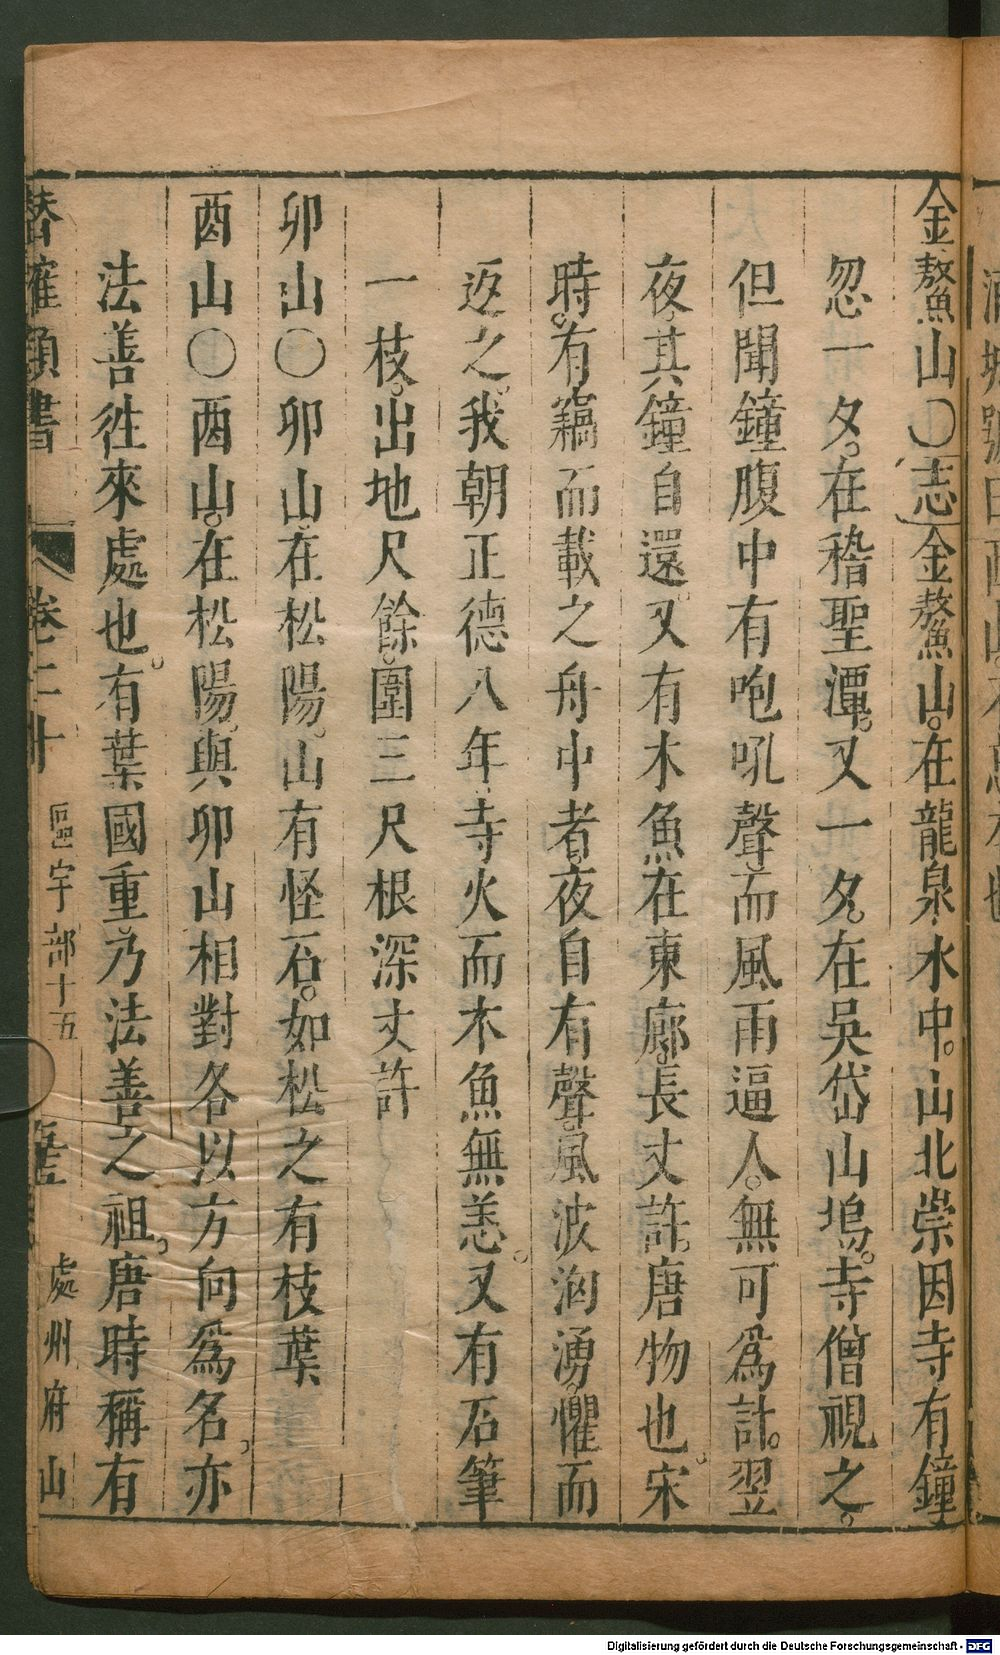 金鰲山〇志金鰲山。在龍泉水中。山北崇因寺有鐘
忽一夕。在稽聖潭。又一夕。在吳岱山塢。寺僧視之。
但聞鐘腹中有咆吼聲。而風雨逼人。無可爲計。翌
夜。其鐘自還。又有木魚在東廊。長丈許。唐物也。宋
時。有竊而載之舟中者。夜自有聲。風波洶湧。懼而
返之。我朝正德八年。寺火而木魚無恙。又有石筆
一枝。出地尺餘。圍三尺根深丈許
卯山〇卯山在松陽。山有怪石。如松之有枝葉
酉山〇酉山。在松陽。與卯山相對各以方向爲名。亦
法善徃來處也。有葉國重。乃法善之祖。唐時稱有
潛確類書 卷二十 區宇部十五 處州府山
Digitalisierung gefördert durch die Deutsche Forschungsgemeinschaft - DFG